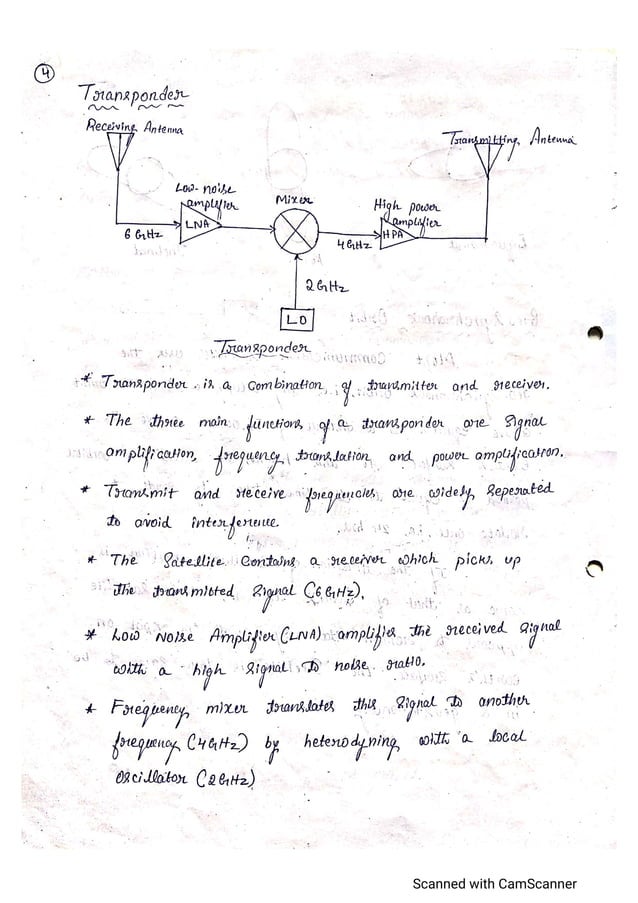 4
Transponder
Receiving Antenna
Transmitting Antenna
Low-noise
amplifier
Mixer
High power
amplifier
6 GHz
LNA
4GHz
HPA
2GHz
LO
Transponder
* Transponder is a combination of transmitter and receiver.
* The three main functions of a transponder are signal
amplification, frequency translation and power amplification.
* Transmit and receive frequencies are widely seperated
to avoid interference.
* The Satellite contains a receiver which picks up
the transmitted signal (6GHz).
* Low Noise Amplifier (LNA) amplifies the received signal
with a high signal to noise ratio.
* Frequency mixer translates this signal to another
frequency (4GHz) by heterodyning with a local
oscillator (2GHz)
Scanned with CamScanner